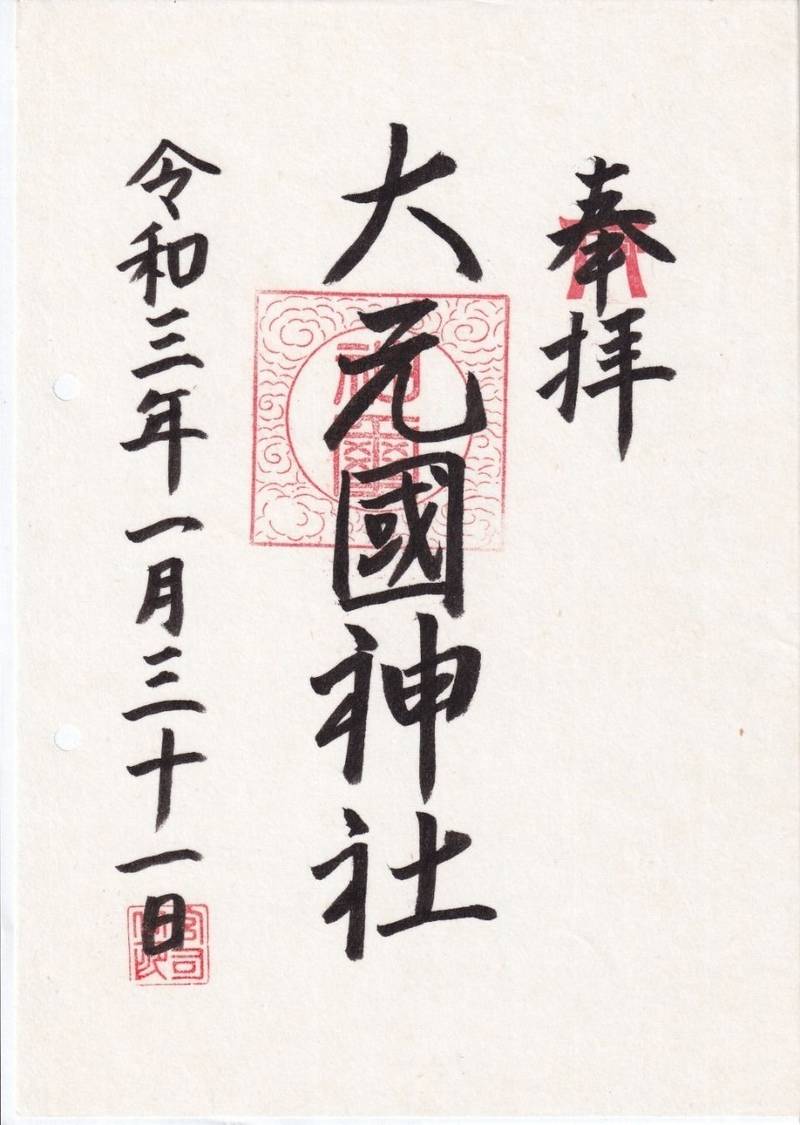 奉拝
大元國神社
令和三年一月三十一日
神璽